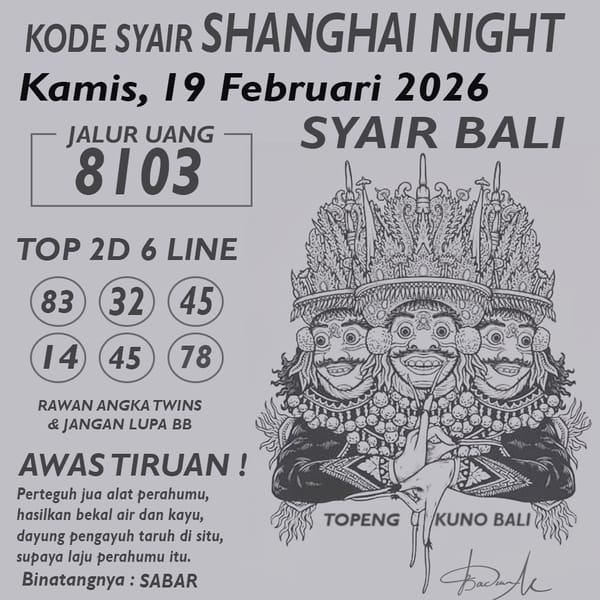 KODE SYAIR SHANGHAI NIGHT
Kamis, 19 Februari 2026
JALUR UANG
8103
SYAIR BALI
TOP 2D 6 LINE
83 32 45
14 45 78
RAWAN ANGKA TWINS
& JANGAN LUPA BB
AWAS TIRUAN !
Perteguh jua alat perahumu,
hasilkan bekal air dan kayu,
dayung pengayuh taruh di situ,
supaya laju perahumu itu.
Binatangnya : SABAR
TOPENG KUNO BALI